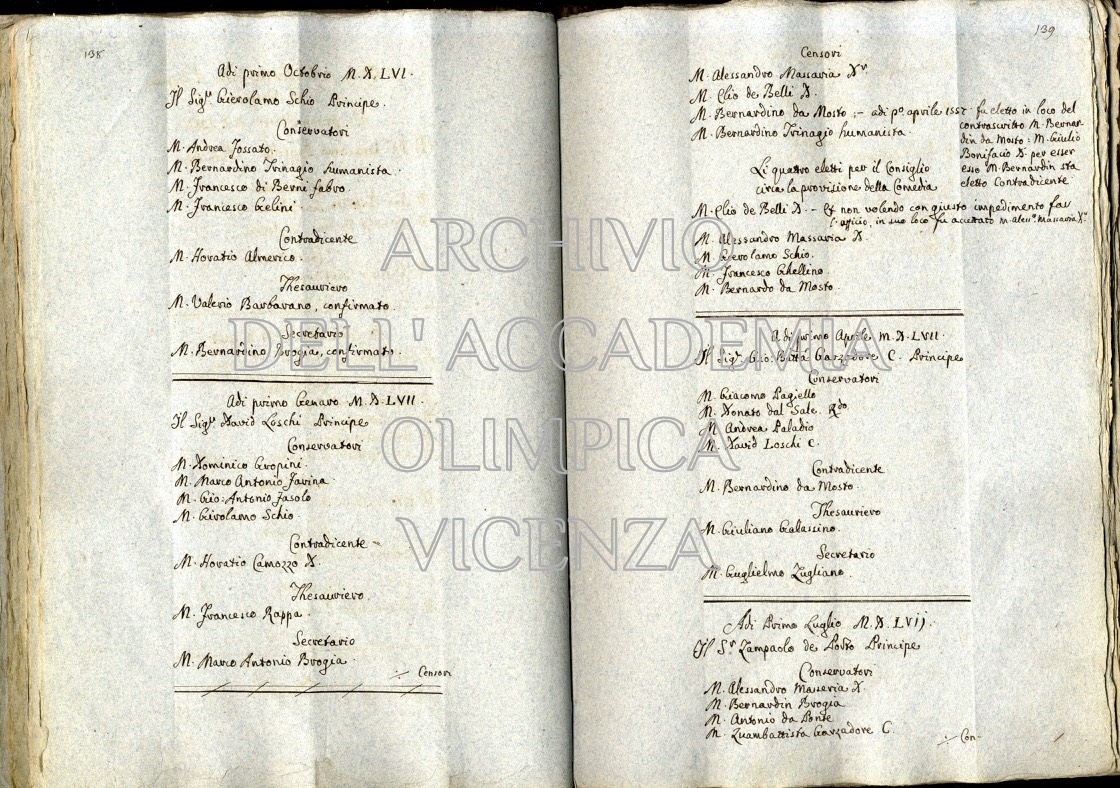 138
Adi primo Octobrio M.D.LVI.
Il Sig.r Gierolamo Schio Principe.
Conservatori
M. Andrea Fossato.
M. Bernardino Trinagio humanista.
M. Francesco di Berni fabro.
M. Francesco Gelini.
Contradicente
M. Horatio Almerico.
Thesauriero
M. Valerio Barbarano, confirmato.
Secretario
M. Bernardino Brogia, confirmato.
Adi primo Genaro M.D.LVII.
Il Sig.r David Loschi Principe
Conservatori
M. Dominico Gropini.
M. Marco Antonio Farina.
M. Gio: Antonio Fasolo
M. Girolamo Schio.
Contradicente
M. Horatio Camozzo D.
Thesauriero.
M. Francesco Rappa.
Secretario
M. Marco Antonio Brogia.
Censori
139
Censori
M. Alessandro Massaria D.r
M. Elio de Belli D.
M. Bernardino da Mosto :- adi p.o aprile 1557. fu eletto in loco del
contrascritto M. Bernar-
din da Mosto: M. Giulio
Bonifacio D. per esser
esso M. Bernardin sta
eletto Contradicente
M. Bernardino Trinagio humanista.
Li quattro eletti per il Consiglio
circa la provisione della Comedia
M. Elio de Belli D. - Et non volendo con giusto impedimento far
l'officio, in suo loco fu accettato M. Aless.o Massaria D.r
M. Alessandro Massaria D.
M. Gierolamo Schio.
M. Francesco Ghellino.
M. Bernardo da Mosto.
Adi primo Aprile M.D.LVII.
Il Sig.r Gio: Batta Garzadore C. Principe
Conservatori
M. Giacomo Pagiello
M. Donato dal Sale R.do
M. Andrea Paladio
M. David Loschi C.
Contradicente
M. Bernardino da Mosto.
Thesauriero
M. Giuliano Galassino.
Secretario
M. Guglielmo Zugliano.
Adi Primo Luglio M.D.LVIJ.
Il S.r Zampaolo de Porto Principe
Conservatori
M. Alessandro Masseria D.
M. Bernardin Brogia
M. Antonio da Ponte
M. Zuambattista Garzadore C.
Con-
ARCHIVIO
DELL'ACCADEMIA
OLIMPICA
VICENZA